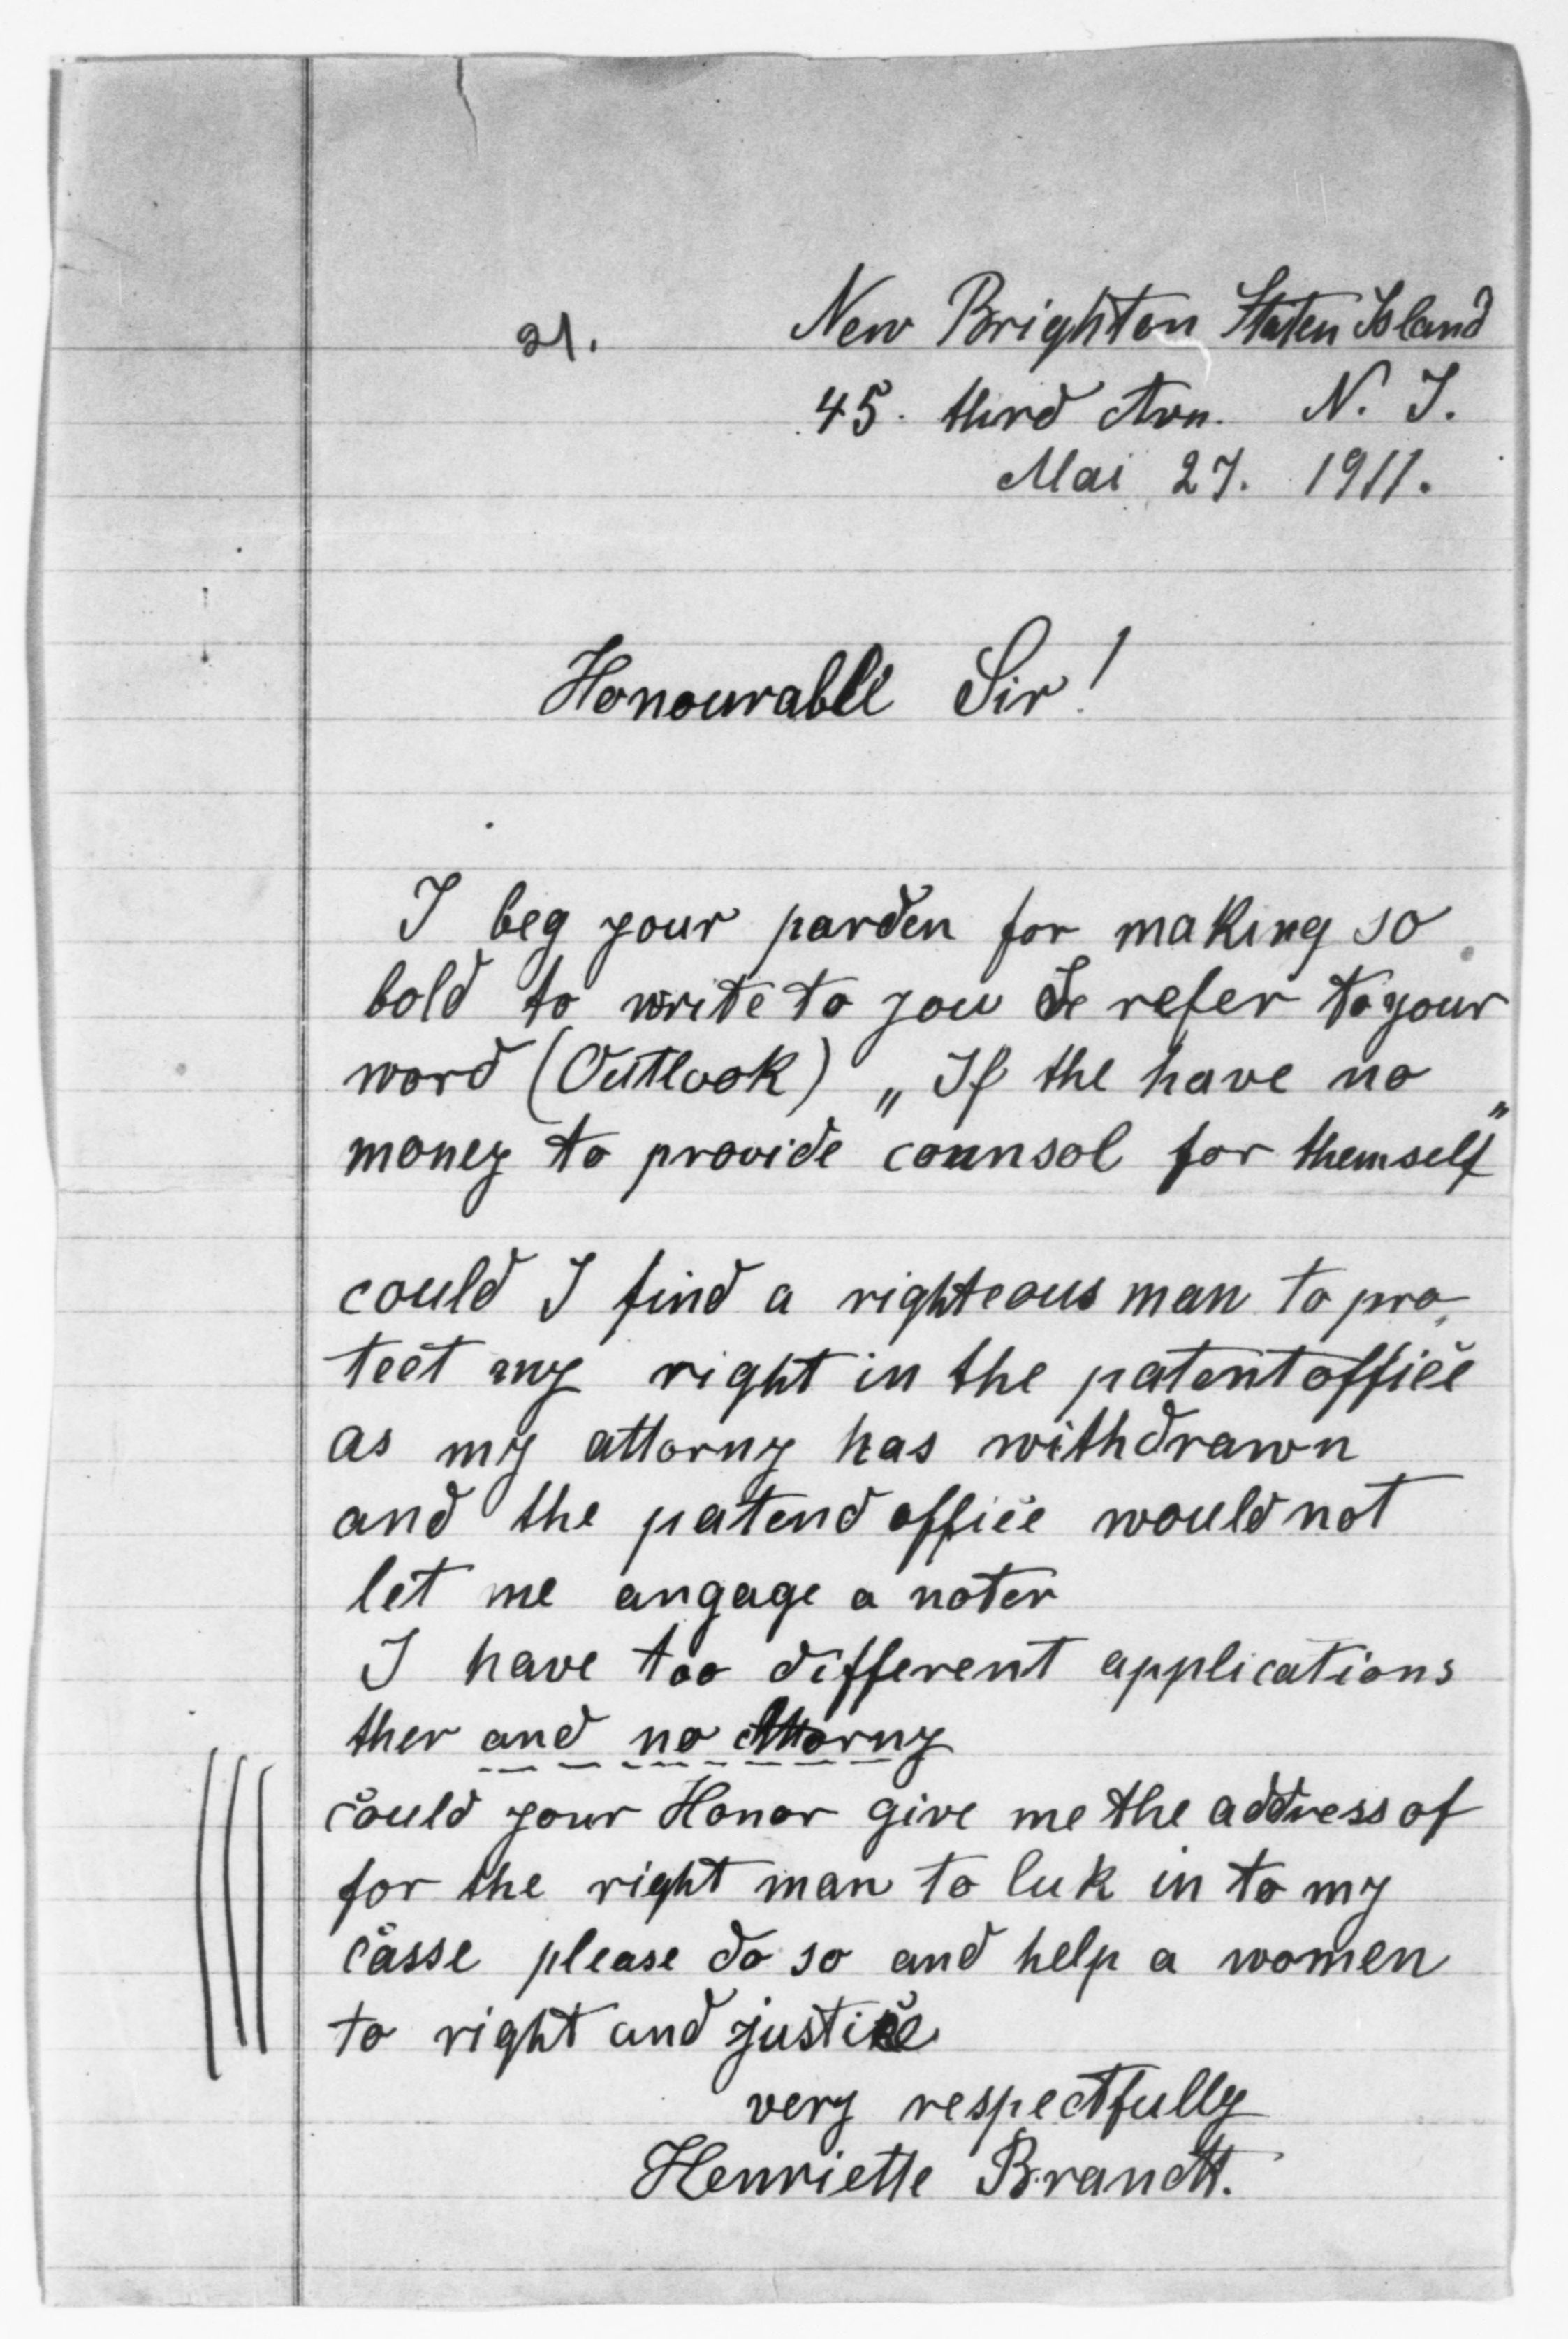 21.
New Brighton Staten Island
45. third Ave. N. Y.
Mai 27. 1911.
Honourable Sir!
I beg your parden for making so
bold to write to you I refer to your
word (Outlook) „If the have no
money to provide counsol for themself"
could I find a righteous man to pro-
tect my right in the patent office
as my attorny has withdrawn
and the patend office would not
let me angage a noter
I have too different applications
ther and no attorny
could your Honor give me the address of
for the right man to luk in to my
casse please do so and help a women
to right and justice
very respectfully
Henriette Brandt.